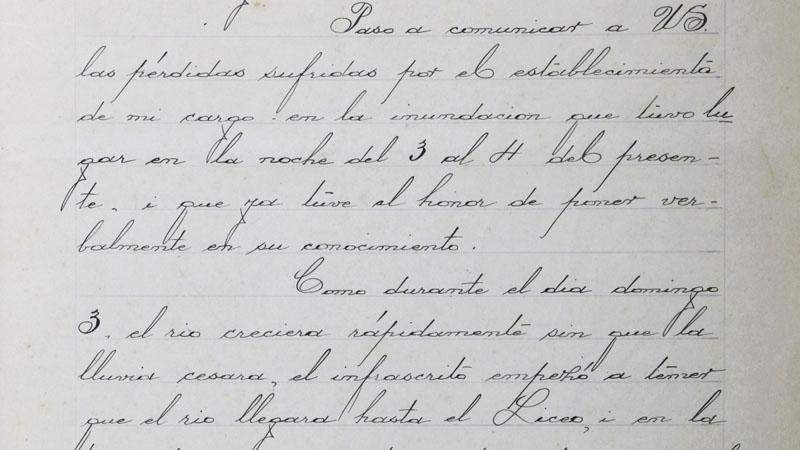 Paso a comunicar a US.
las pérdidas sufridas por el establecimiento
de mi cargo en la inundacion que tuvo lu
gar en la noche del 3 al 4 del presen-
te, i que ya tuve el honor de poner ver-
balmente en su conocimiento.
Como durante el dia domingo
3, el rio creciera rápidamente sin que la
lluvia cesara, el infrascrito empezó a temer
que el rio llegara hasta el Liceo, i en la